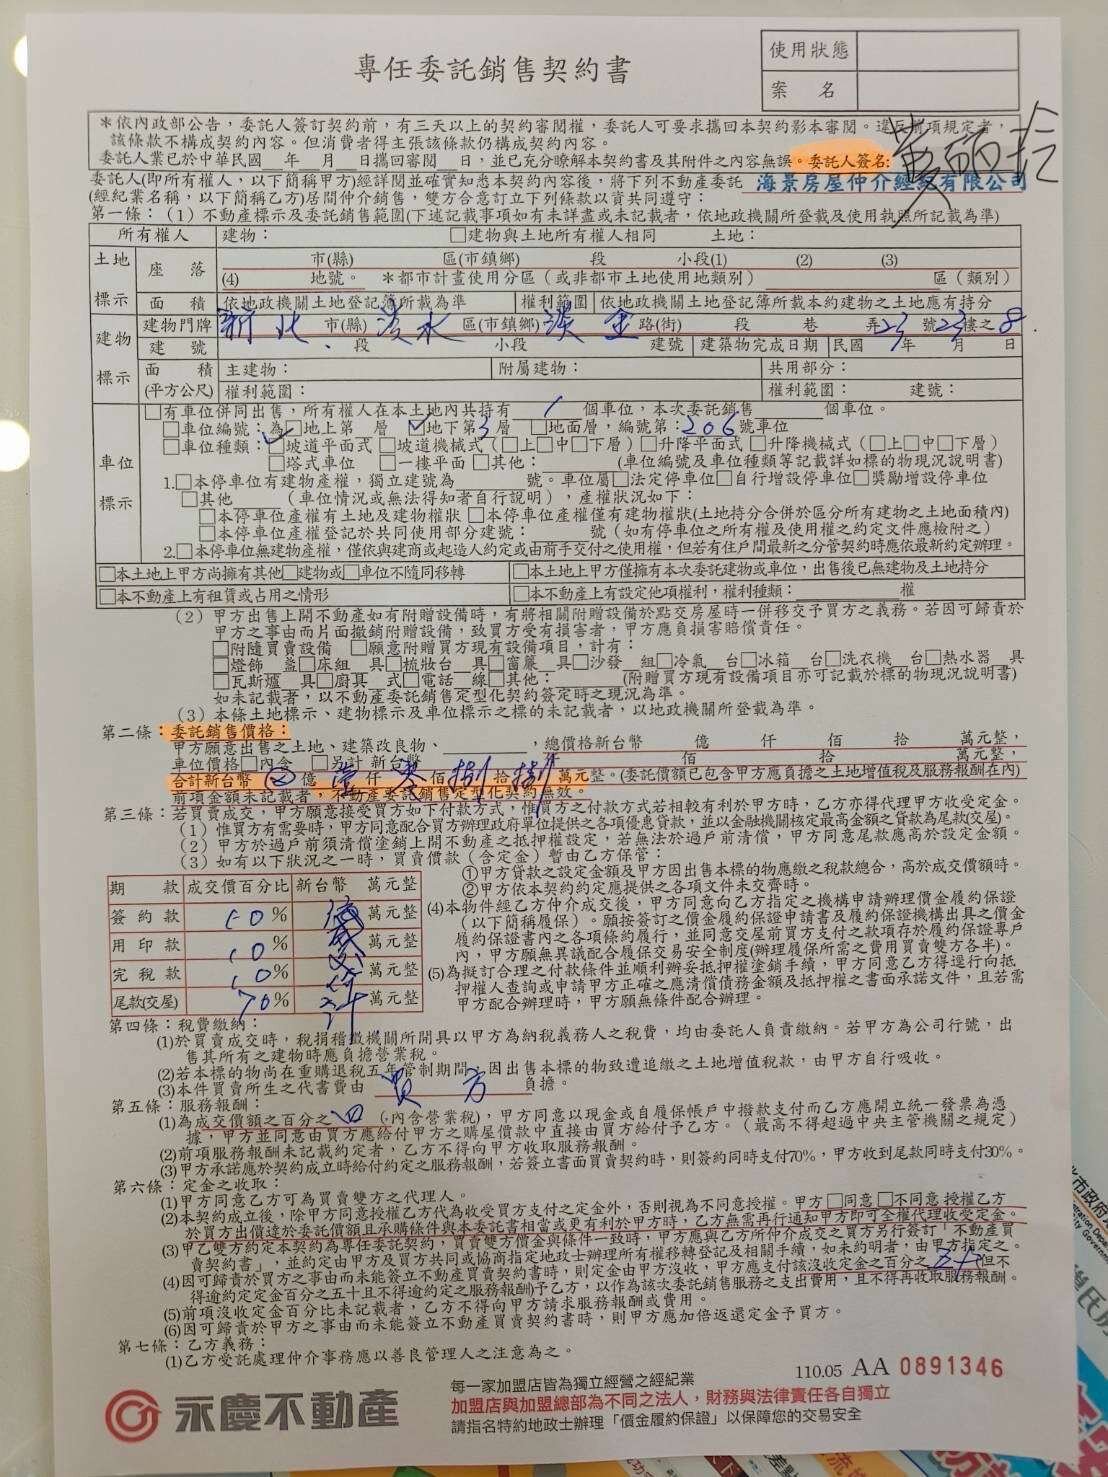 專任委託銷售契約書
使用狀態
案　名
＊依內政部公告，委託人簽訂契約前，有三天以上的契約審閱權，委託人可要求攜回本契約影本審閱。違反前項規定者，
該條款不構成契約內容。但消費者得主張該條款仍構成契約內容。
委託人業已於中華民國　年　月　日攜回審閱　日，並已充分瞭解本契約書及其附件之內容無誤。委託人簽名:
委託人(即所有權人，以下簡稱甲方)經詳閱並確實知悉本契約內容後，將下列不動產委託 海景房屋仲介經紀有限公司
(經紀業名稱，以下簡稱乙方)居間仲介銷售，雙方合意訂立下列條款以資共同遵守：
第一條：(1) 不動產標示及委託銷售範圍(下述記載事項如有未詳盡或未記載者，依地政機關所登載及使用執照所記載為準)
所有權人　建物：　□建物與土地所有權人相同　土地：
土地標示　座　落　市(縣)　區(市鎮鄉)　段　小段(1)　(2)　(3)
(4)　地號。　＊都市計畫使用分區（或非都市土地使用地類別）　區（類別）
面　積　依地政機關土地登記簿所載為準　權利範圍　依地政機關土地登記簿所載本約建物之土地應有持分
建物標示　建物門牌　新北 市(縣) 淡水 區(市鎮鄉) 淡金 路(街)　段　巷　弄 23 號 23 樓之 8
建　號　段　小段　建號　建築物完成日期　民國　年　月　日
面　積　主建物：　附屬建物：　共用部分：
(平方公尺)　權利範圍：　權利範圍：　建號：
車位標示　□有車位併同出售，所有權人在本土地內共持有 1 個車位，本次委託銷售　個車位。
□車位編號：為□地上第　層　☑地下第3層　□地面層，編號第：206 號車位
□車位種類：□坡道平面式　□坡道機械式（□上□中□下層）□升降平面式　□升降機械式（□上□中□下層）
□塔式車位　□一樓平面　□其他：　(車位編號及車位種類等記載詳如標的物現況說明書)
1.□本停車位有建物產權，獨立建號為　號。車位屬□法定停車位□自行增設停車位□獎勵增設停車位
□其他　（車位情況或無法得知者自行說明），產權狀況如下：
□本停車位產權有土地及建物權狀　□本停車位產權僅有建物權狀(土地持分合併於區分所有建物之土地面積內)
□本停車位產權登記於共同使用部分建號：　號（如有停車位之所有權及使用權之約定文件應檢附之）
2.□本停車位無建物產權，僅依與建商或起造人約定或由前手交付之使用權，但若有住戶間最新之分管契約時應依最新約定辦理。
□本土地上甲方尚擁有其他□建物或□車位不隨同移轉　□本土地上甲方僅擁有本次委託建物或車位，出售後已無建物及土地持分
□本不動產上有租賃或占用之情形　□本不動產上有設定他項權利，權利種類：　權
(2) 甲方出售上開不動產如有附贈設備時，有將相關附贈設備於點交房屋時一併移交予買方之義務。若因可歸責於
甲方之事由而片面撤銷附贈設備，致買方受有損害者，甲方應負損害賠償責任。
□附隨買賣設備　□願意附贈買方現有設備項目，計有：
□燈飾　盞□床組　具□梳妝台　具□窗簾　具□沙發　組□冷氣　台□冰箱　台□洗衣機　台□熱水器　具
□瓦斯爐　具□廚具　式□電話　線□其他：　(附贈買方現有設備項目亦可記載於標的物現況說明書)
如未記載者，以不動產委託銷售定型化契約簽定時之現況為準。
(3) 本條土地標示、建物標示及車位標示之標的未記載者，以地政機關所登載為準。
第二條：委託銷售價格：
甲方願意出售之土地、建築改良物、　，總價格新台幣　億　仟　佰　拾　萬元整，
車位價格□內含　□另計 新台幣　仟　佰　拾　萬元整，
合計新台幣　億 壹 仟　佰 捌 拾 捌 萬元整。(委託價額已包含甲方應負擔之土地增值稅及服務報酬在內)
前項金額未記載者，不動產委託銷售定型化契約無效。
第三條：若買賣成交，甲方願意接受買方如下付款方式，惟買方之付款方式若相較有利於甲方時，乙方亦得代理甲方收受定金。
(1) 惟買方有需要時，甲方同意配合買方辦理政府單位提供之各項優惠貸款，並以金融機關核定最高金額之貸款為尾款(交屋)。
(2) 甲方於過戶前須清償塗銷上開不動產之抵押權設定，若無法於過戶前清償，甲方同意尾款應高於設定金額。
(3) 如有以下狀況之一時，買賣價款（含定金）暫由乙方保管：
①甲方貸款之設定金額及甲方因出售本標的物應繳之稅款總合，高於成交價額時。
②甲方依本契約約定應提供之各項文件未交齊時。
期　款　成交價百分比　新台幣　萬元整
簽約款　10%　萬元整
用印款　10%　萬元整
完稅款　10%　萬元整
尾款(交屋)　70%　萬元整
(4)本物件經乙方仲介成交後，甲方同意向乙方指定之機構申請辦理價金履約保證
（以下簡稱履保）。願按簽訂之價金履約保證申請書及履約保證機構出具之價金
履約保證書內之各項條約履行，並同意交屋前買方支付之款項存於履約保證專戶
內，甲方願無異議配合履保交易安全制度(辦理履保所需之費用買賣雙方各半)。
(5)為擬訂合理之付款條件並順利辦妥抵押權塗銷手續，甲方同意乙方得逕行向抵
押權人查詢或申請甲方正確之應清償債務金額及抵押權之書面承諾文件，且若需
甲方配合辦理時，甲方願無條件配合辦理。
第四條：稅費繳納：
(1)於買賣成交時，稅捐稽徵機關所開具以甲方為納稅義務人之稅費，均由委託人負責繳納。若甲方為公司行號，出
售其所有之建物時應負擔營業稅。
(2)若本標的物尚在重購退稅五年管制期間，因出售本標的物致遭追繳之土地增值稅款，由甲方自行吸收。
(3)本件買賣所生之代書費由 買方 負擔。
第五條：服務報酬：
(1)為成交價額之百分之 四 (內含營業稅)，甲方同意以現金或自履保帳戶中撥款支付而乙方應開立統一發票為憑
據，甲方並同意由買方應給付甲方之購屋價款中直接由買方給付予乙方。（最高不得超過中央主管機關之規定）
(2)前項服務報酬未記載約定者，乙方不得向甲方收取服務報酬。
(3)甲方承諾應於契約成立時給付約定之服務報酬，若簽立書面買賣契約時，則簽約同時支付70%，甲方收到尾款同時支付30%。
第六條：定金之收取：
(1)甲方同意乙方可為買賣雙方之代理人。
(2)本契約成立後，除甲方同意授權乙方代為收受買方支付之定金外，否則視為不同意授權。甲方□同意□不同意 授權乙方
於買方出價達於委託價額且承購條件與本委託書相當或更有利於甲方時，乙方無需再行通知甲方即可全權代理收受定金。
(3)甲乙雙方約定本契約為專任委託契約，買賣雙方價金與條件一致時，甲方應與乙方所仲介成交之買方另行簽訂「不動產買
賣契約書」，並約定由甲方及買方共同或協商指定地政士辦理所有權移轉登記及相關手續，如未約明者，由甲方指定之。
(4)因可歸責於買方之事由而未能簽立不動產買賣契約書時，則定金由甲方沒收，甲方應支付該沒收定金之百分之 五十 (但不
得逾約定定金百分之五十且不得逾約定之服務報酬)予乙方，以作為該次委託銷售服務之支出費用，且不得再收取服務報酬。
(5)前項沒收定金百分比未記載者，乙方不得向甲方請求服務報酬或費用。
(6)因可歸責於甲方之事由而未能簽立不動產買賣契約書時，則甲方應加倍返還定金予買方。
第七條：乙方義務：
(1)乙方受託處理仲介事務應以善良管理人之注意為之。
永慶不動產
每一家加盟店皆為獨立經營之經紀業
加盟店與加盟總部為不同之法人，財務與法律責任各自獨立
請指名特約地政士辦理「價金履約保證」以保障您的交易安全
110.05 AA 0891346